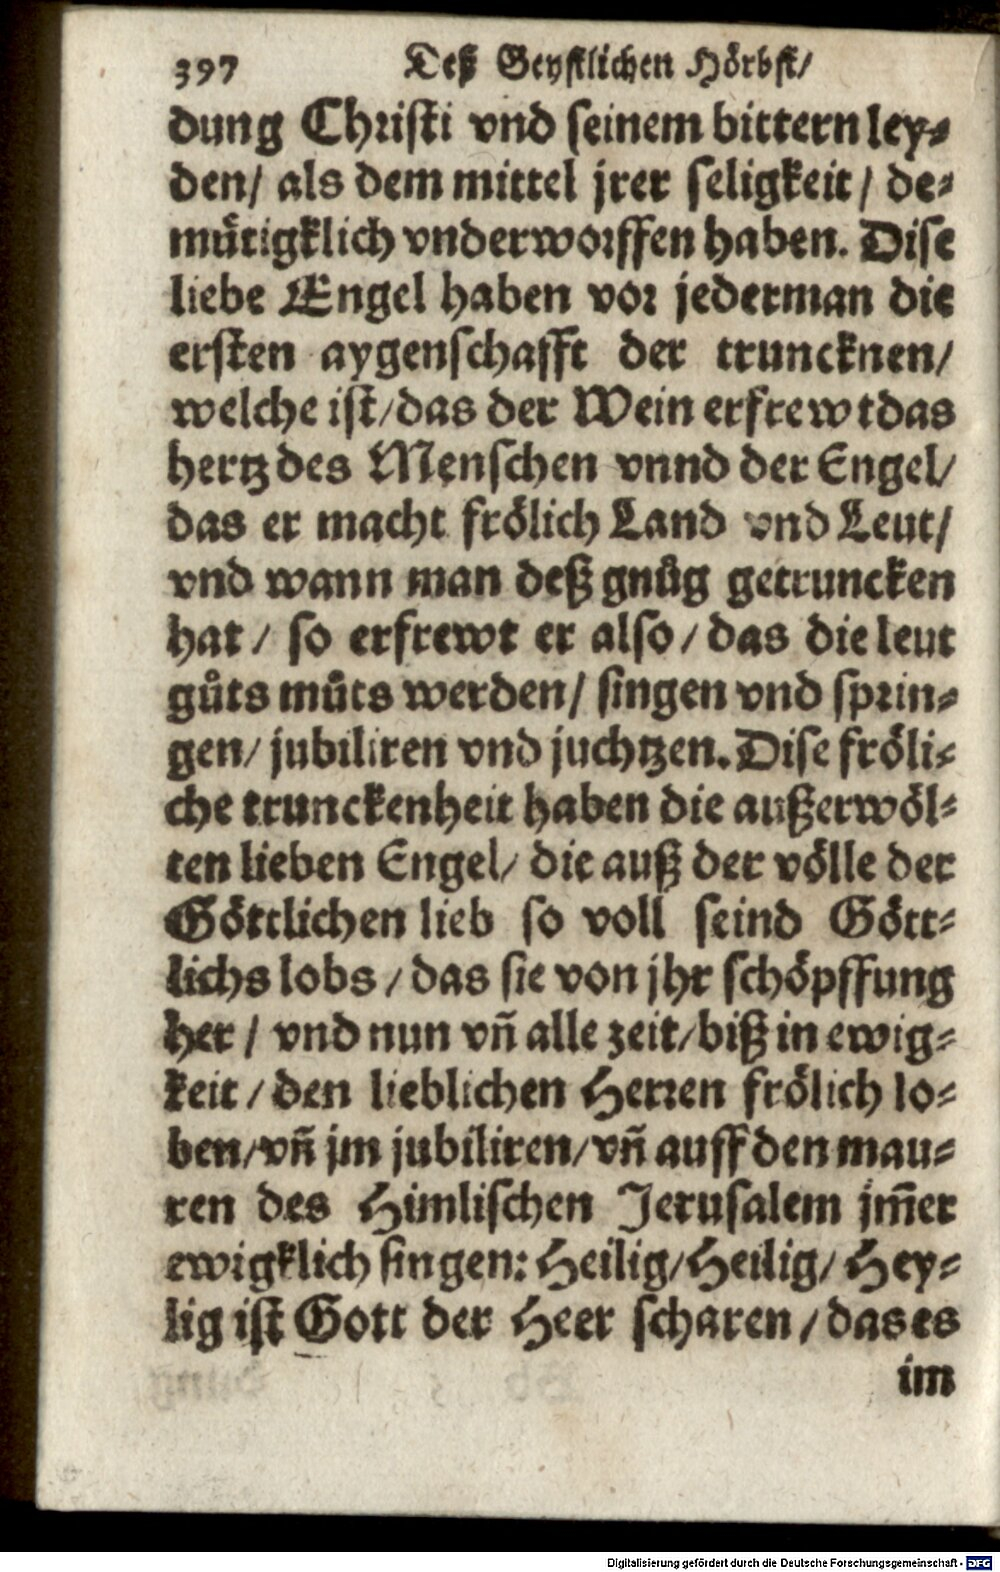 397 Deß Geystlichen Hörbst/
dung Christi vnd seinem bittern ley⸗
den/ als dem mittel jrer seligkeit/ de⸗
muͤtigklich vnderworffen haben. Dise
liebe Engel haben vor jederman die
ersten aygenschafft der truncknen/
welche ist/das der Wein erfrewt das
hertz des Menschen vnnd der Engel/
das er macht froͤlich Land vnd Leut/
vnd wann man deß gnůg getruncken
hat/ so erfrewt er also/ das die leut
gůts můts werden/ singen vnd sprin⸗
gen/ jubiliren vnd juchtzen. Dise froͤli⸗
che trunckenheit haben die außerwoͤl⸗
ten lieben Engel/ die auß der voͤlle der
Goͤttlichen lieb so voll seind Goͤtt⸗
lichs lobs/ das sie von jhr schoͤpffung
her/ vnd nun vñ alle zeit/biß in ewig⸗
keit/ den lieblichen Herren froͤlich lo⸗
ben/vñ jm jubiliren/vñ auff den mau⸗
ren des Himlischen Jerusalem jm̃er
ewigklich singen: Heilig/Heilig/ Hey⸗
lig ist Gott der Heer scharen/das es
im
Digitalisierung gefördert durch die Deutsche Forschungsgemeinschaft - DFG